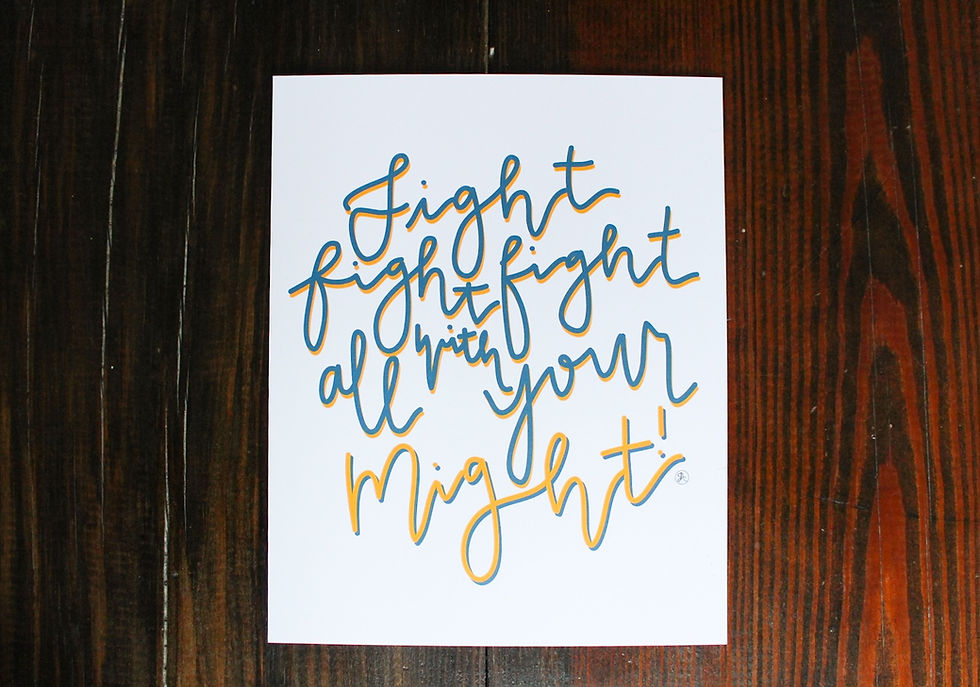 Fight
fight fight
all with your
Might!